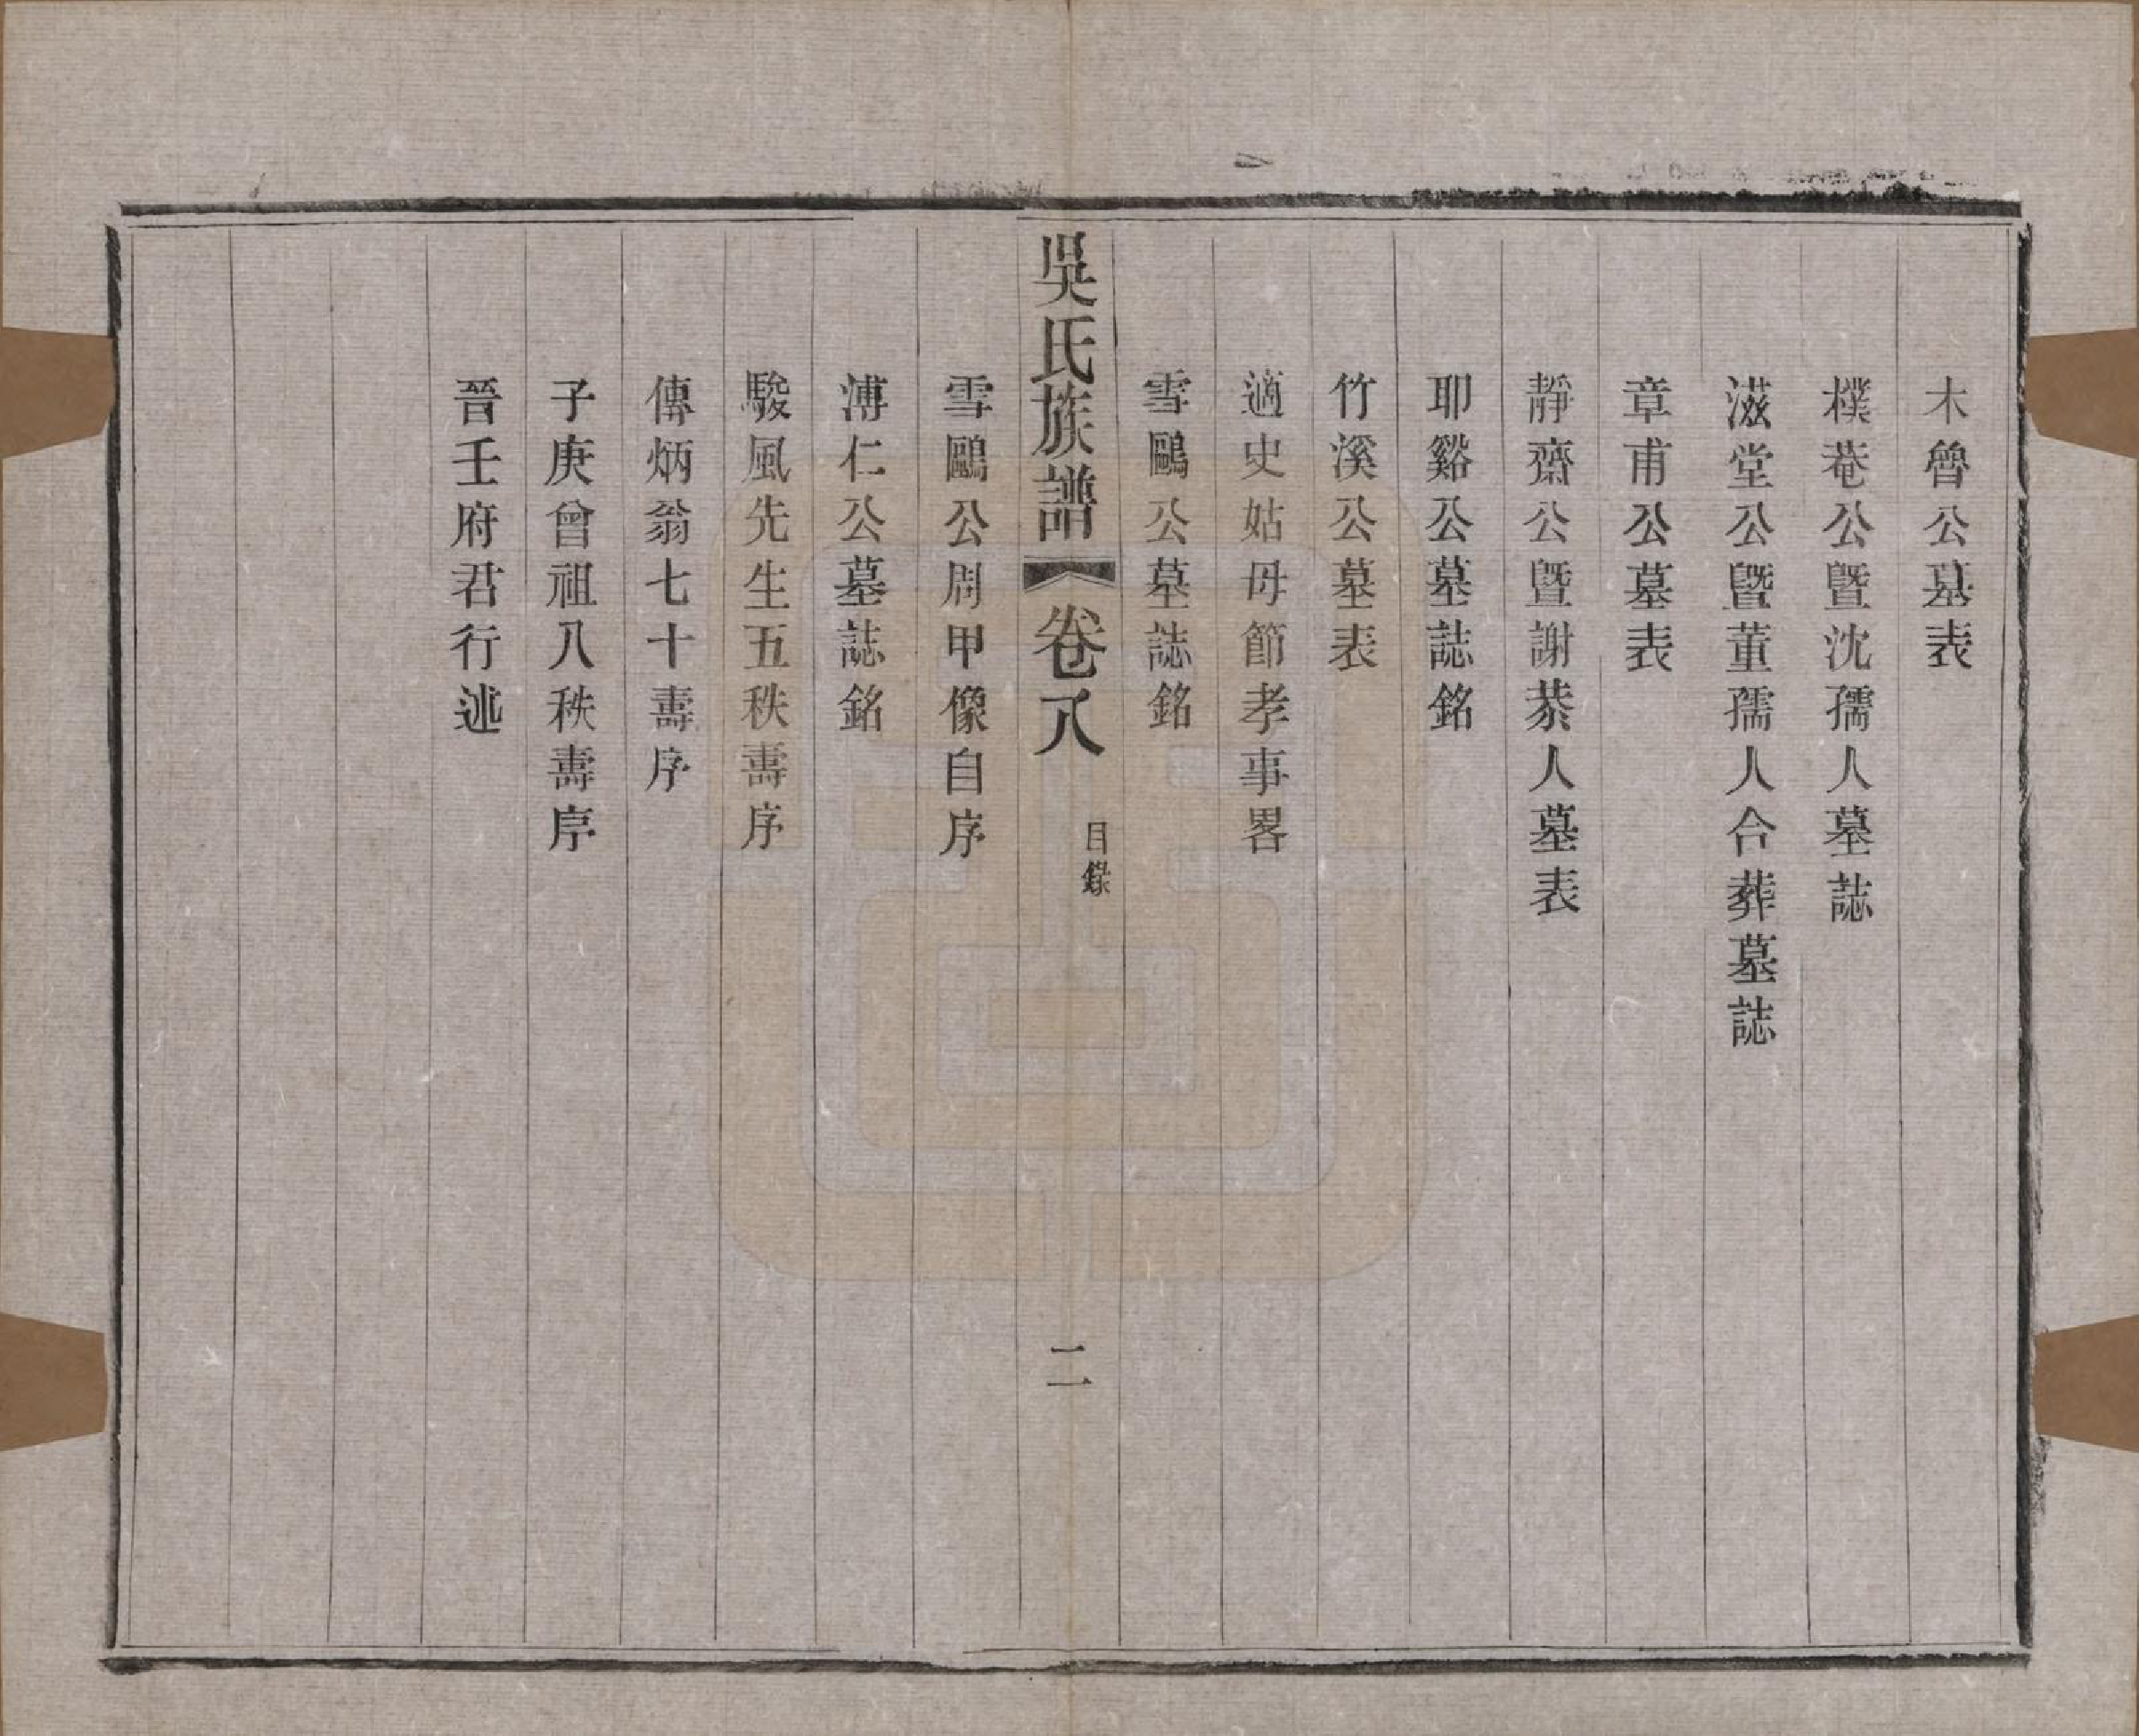 木魯公墓表
樸菴公暨沈孺人墓誌
滋堂公暨董孺人合葬墓誌
章甫公墓表
靜齋公暨謝恭人墓表
耶谿公墓誌銘
竹溪公墓表
適史姑母節孝事畧
雪鷗公墓誌銘
吳氏族譜 卷八 目錄 二
雪鷗公周甲像自序
溥仁公墓誌銘
駿風先生五秩壽序
傳炳翁七十壽序
子庚曾祖八秩壽序
晉壬府君行述